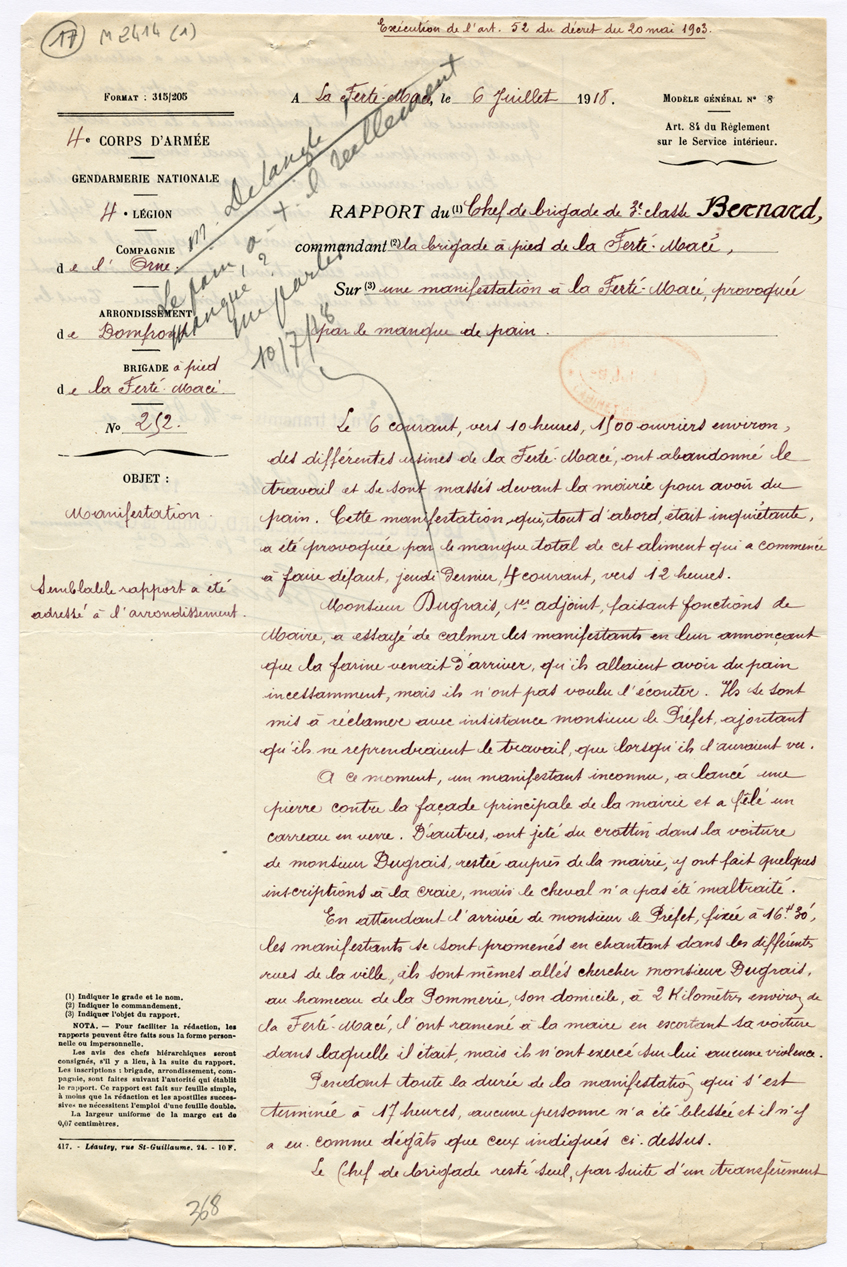 Exécution de l'art. 52 du décret du 20 mai 1903.
17 M 2414 (1)
FORMAT : 315/205
4e CORPS D'ARMÉE
GENDARMERIE NATIONALE
4e LÉGION
COMPAGNIE
de l'Orne
ARRONDISSEMENT
de Domfront
BRIGADE à pied
de la Ferté-Macé
No 252.
OBJET :
Manifestation.
Semblable rapport a été
adressé à l'arrondissement.
A La Ferté-Macé, le 6 Juillet 1918.
MODÈLE GÉNÉRAL No 8
Art. 84 du Règlement
sur le Service intérieur.
M. Delange !
Le pain a-t-il réellement
manqué ?
M'en parler
10/7/18
RAPPORT du (1) Chef de brigade de 3e classe Bernard,
commandant (2) la brigade à pied de la Ferté-Macé,
Sur (3) une manifestation à la Ferté-Macé, provoquée
par le manque de pain.
Le 6 courant, vers 10 heures, 1500 ouvriers environ,
des différentes usines de la Ferté-Macé, ont abandonné le
travail et se sont massés devant la mairie pour avoir du
pain. Cette manifestation, qui, tout d'abord, était inquiétante,
a été provoquée par le manque total de cet aliment qui a commencé
à faire défaut, jeudi dernier, 4 courant, vers 12 heures.
Monsieur Dugrais, 1er adjoint, faisant fonctions de
Maire, a essayé de calmer les manifestants en leur annonçant
que la farine venait d'arriver, qu'ils allaient avoir du pain
incessamment, mais ils n'ont pas voulu l'écouter. Ils se sont
mis à réclamer avec insistance monsieur le Préfet, ajoutant
qu'ils ne reprendraient le travail, que lorsqu'ils l'auraient vu.
A ce moment, un manifestant inconnu, a lancé une
pierre contre la façade principale de la mairie et a fêlé un
carreau en verre. D'autres, ont jeté du crottin dans la voiture
de monsieur Dugrais, restée auprès de la mairie, y ont fait quelques
inscriptions à la craie, mais le cheval n'a pas été maltraité.
En attendant l'arrivée de monsieur le Préfet, fixée à 16H 30',
les manifestants se sont promenés en chantant dans les différentes
rues de la ville, ils sont mêmes allés chercher monsieur Dugrais,
au hameau de la Pommerie, son domicile, à 2 Kilomètres environ de
la Ferté-Macé, l'ont ramené à la maire en escortant sa voiture
dans laquelle il était, mais ils n'ont exercé sur lui aucune violence.
Pendant toute la durée de la manifestation qui s'est
terminée à 17 heures, aucune personne n'a été blessée et il n'y
a eu comme dégâts que ceux indiqués ci-dessus.
Le Chef de brigade resté seul, par suite d'un transfèrement
(1) Indiquer le grade et le nom.
(2) Indiquer le commandement.
(3) Indiquer l'objet du rapport.
NOTA. — Pour faciliter la rédaction, les
rapports peuvent être faits sous la forme person-
nelle ou impersonnelle.
Les avis des chefs hiérarchiques seront
consignés, s'il y a lieu, à la suite du rapport.
Les inscriptions : brigade, arrondissement, com-
pagnie, sont faites suivant l'autorité qui établit
le rapport. Ce rapport est fait sur feuille simple,
à moins que la rédaction et les apostilles succes-
sives ne nécessitent l'emploi d'une feuille double.
La largeur uniforme de la marge est de
0,07 centimètres.
417. - Léautey, rue St-Guillaume. 24. - 10 F.
368